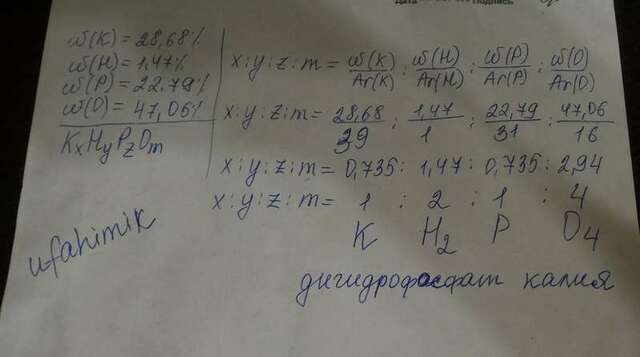 Дата подпись
ω(K) = 28,68%
ω(H) = 1,47%
ω(P) = 22,79%
ω(O) = 47,06%
KxHyPzOm
x:y:z:m = ω(K)/Ar(K) : ω(H)/Ar(H) : ω(P)/Ar(P) : ω(O)/Ar(O)
x:y:z:m = 28,68/39 : 1,47/1 : 22,79/31 : 47,06/16
x:y:z:m = 0,735 : 1,47 : 0,735 : 2,94
x:y:z:m = 1 : 2 : 1 : 4
K H2 P O4
ufahimik
дигидрофосфат калия